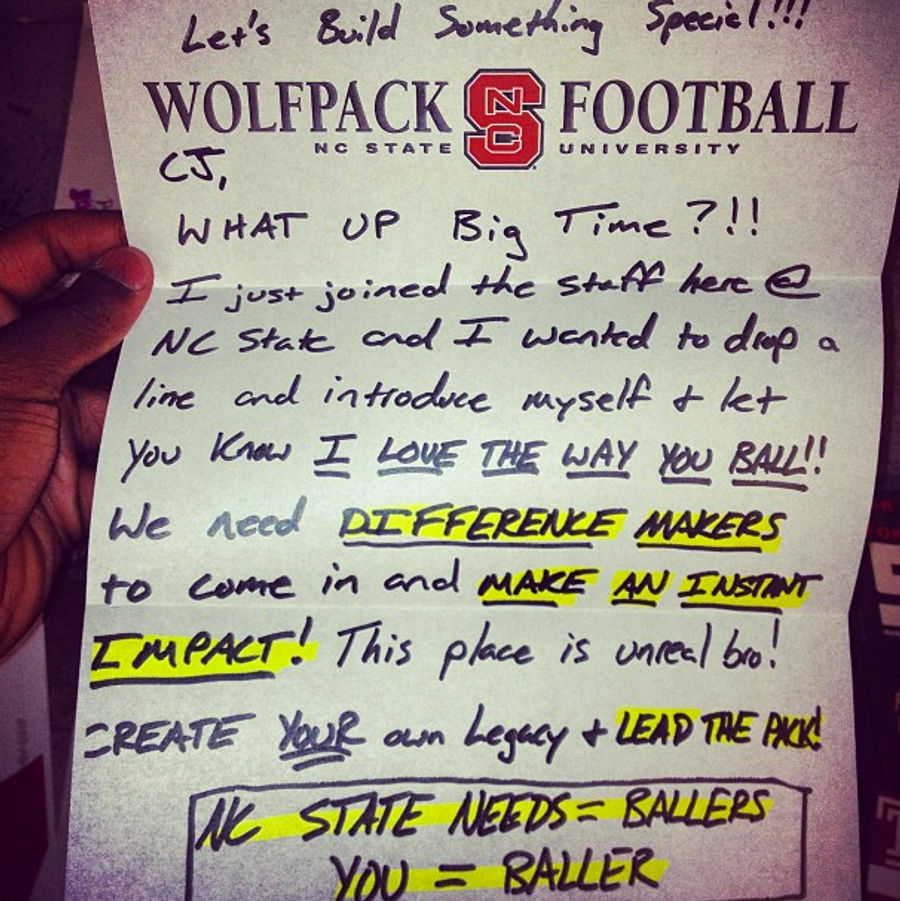 Let's Build Something Special!!!
WOLFPACK NCS FOOTBALL
NC STATE UNIVERSITY
CJ,
WHAT UP Big Time?!!
I just joined the staff here @
NC State and I wanted to drop a
line and introduce myself + let
you know I LOVE THE WAY YOU BALL!!
We need DIFFERENCE MAKERS
to come in and MAKE AN INSTANT
IMPACT! This place is unreal bro!
CREATE YOUR own Legacy + LEAD THE PACK!
NC STATE NEEDS = BALLERS
YOU = BALLER